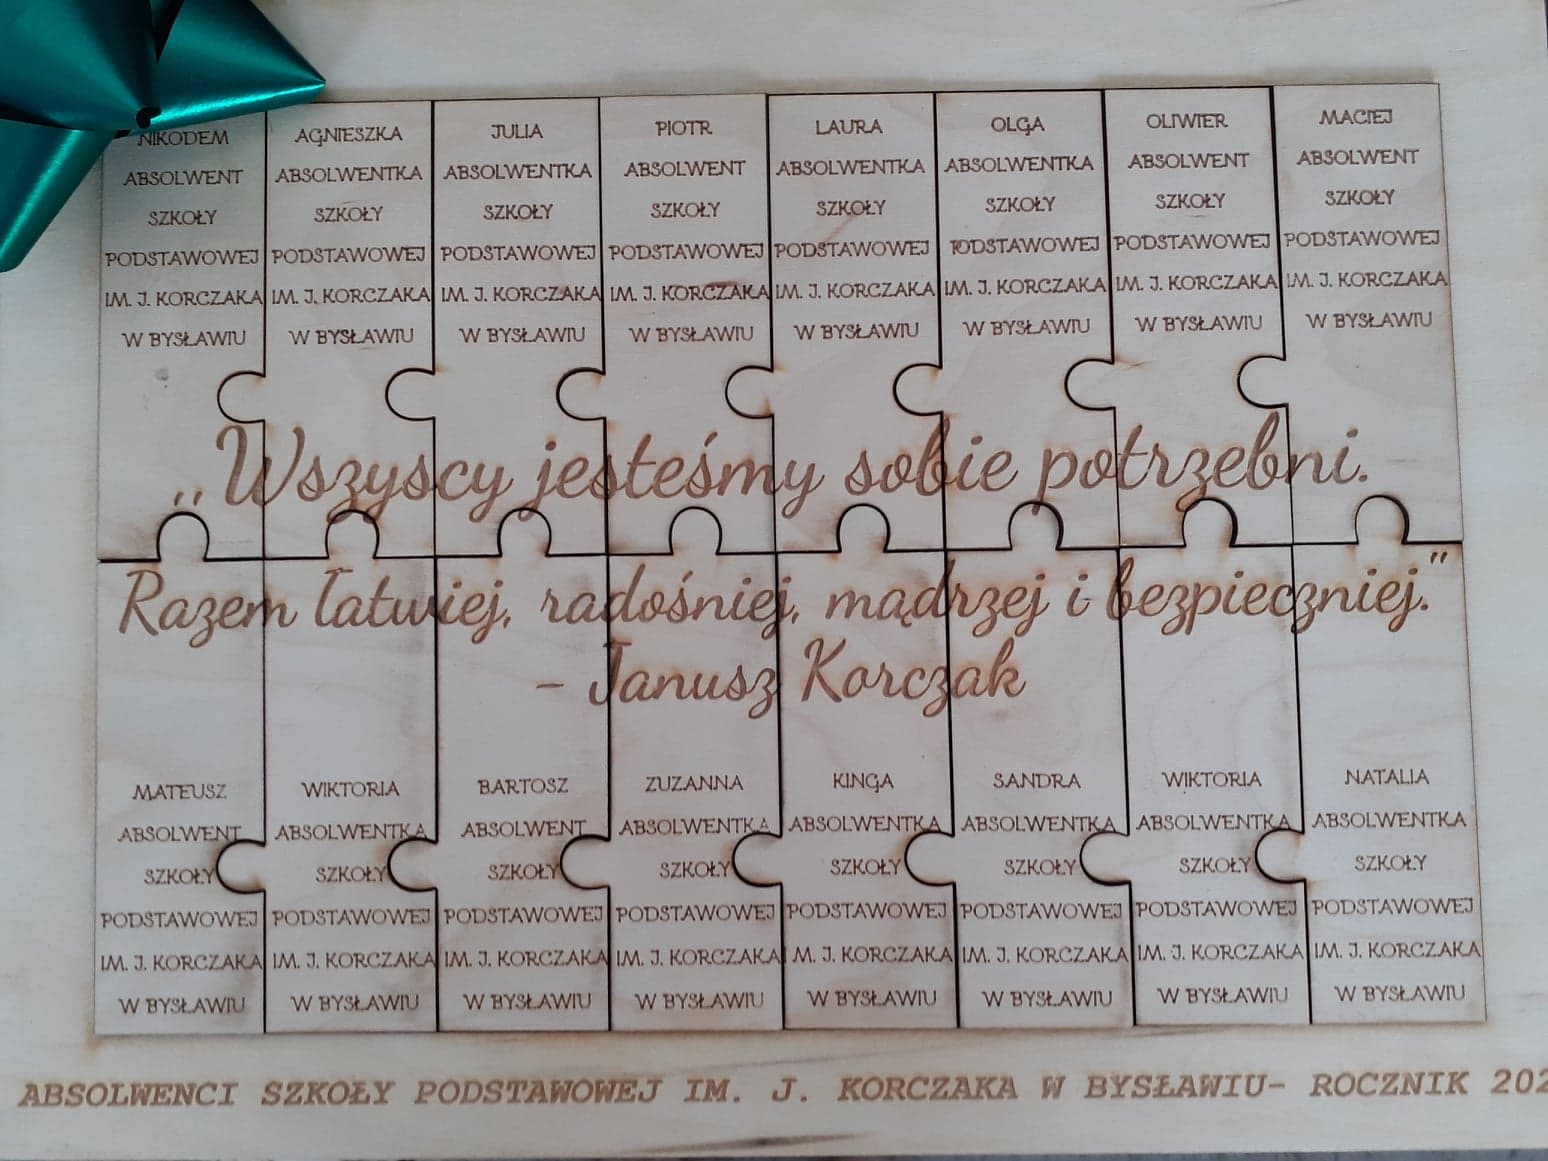 NIKODEM
ABSOLWENT
SZKOŁY
PODSTAWOWEJ
IM. J. KORCZAKA
W BYSŁAWIU
AGNIESZKA
ABSOLWENTKA
SZKOŁY
PODSTAWOWEJ
IM. J. KORCZAKA
W BYSŁAWIU
JULIA
ABSOLWENTKA
SZKOŁY
PODSTAWOWEJ
IM. J. KORCZAKA
W BYSŁAWIU
PIOTR
ABSOLWENT
SZKOŁY
PODSTAWOWEJ
IM. J. KORCZAKA
W BYSŁAWIU
LAURA
ABSOLWENTKA
SZKOŁY
PODSTAWOWEJ
IM. J. KORCZAKA
W BYSŁAWIU
OLGA
ABSOLWENTKA
SZKOŁY
PODSTAWOWEJ
IM. J. KORCZAKA
W BYSŁAWIU
OLIWIER
ABSOLWENT
SZKOŁY
PODSTAWOWEJ
IM. J. KORCZAKA
W BYSŁAWIU
MACIEJ
ABSOLWENT
SZKOŁY
PODSTAWOWEJ
IM. J. KORCZAKA
W BYSŁAWIU
„Wszyscy jesteśmy sobie potrzebni.
Razem łatwiej, radośniej, mądrzej i bezpieczniej."
- Janusz Korczak
MATEUSZ
ABSOLWENT
SZKOŁY
PODSTAWOWEJ
IM. J. KORCZAKA
W BYSŁAWIU
WIKTORIA
ABSOLWENTKA
SZKOŁY
PODSTAWOWEJ
IM. J. KORCZAKA
W BYSŁAWIU
BARTOSZ
ABSOLWENT
SZKOŁY
PODSTAWOWEJ
IM. J. KORCZAKA
W BYSŁAWIU
ZUZANNA
ABSOLWENTKA
SZKOŁY
PODSTAWOWEJ
IM. J. KORCZAKA
W BYSŁAWIU
KINGA
ABSOLWENTKA
SZKOŁY
PODSTAWOWEJ
IM. J. KORCZAKA
W BYSŁAWIU
SANDRA
ABSOLWENTKA
SZKOŁY
PODSTAWOWEJ
IM. J. KORCZAKA
W BYSŁAWIU
WIKTORIA
ABSOLWENTKA
SZKOŁY
PODSTAWOWEJ
IM. J. KORCZAKA
W BYSŁAWIU
NATALIA
ABSOLWENTKA
SZKOŁY
PODSTAWOWEJ
IM. J. KORCZAKA
W BYSŁAWIU
ABSOLWENCI SZKOŁY PODSTAWOWEJ IM. J. KORCZAKA W BYSŁAWIU- ROCZNIK 202